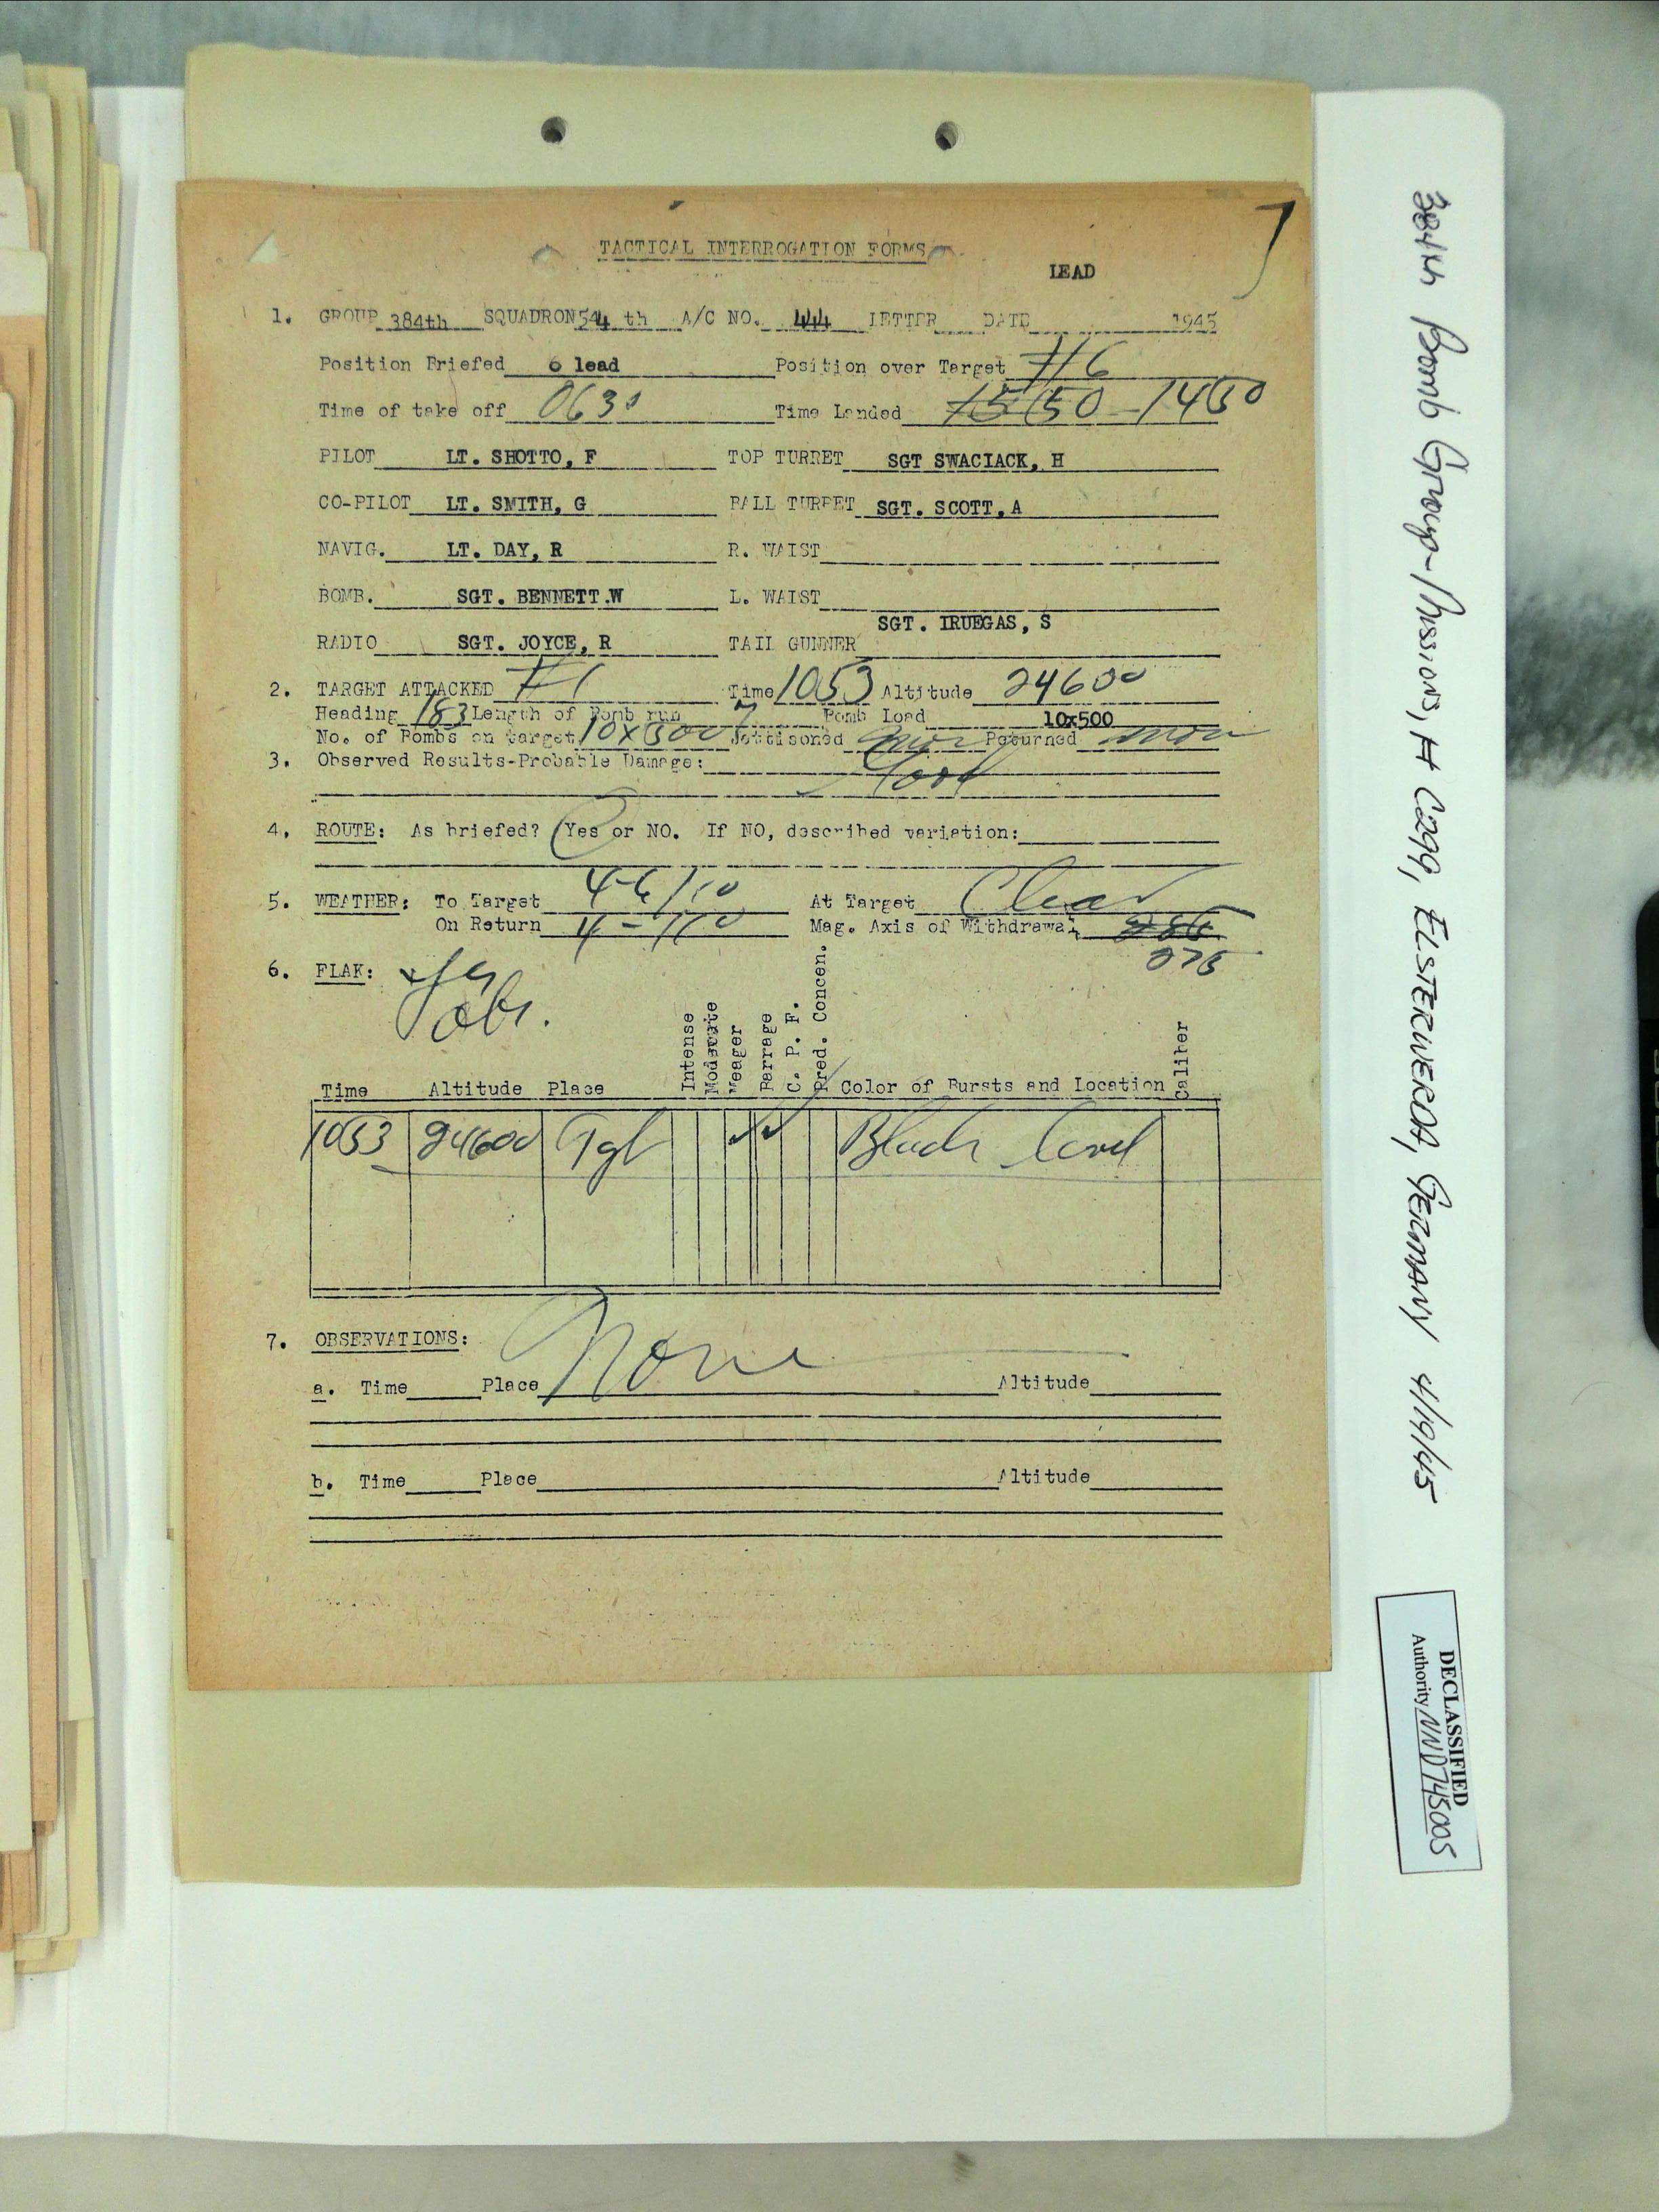 TACTICAL INTERROGATION FORMS
LEAD
1. GROUP 384th SQUADRON 544 th A/C NO. 444 LETTER DATE 1945
Position Briefed 6 lead Position over Target #6
Time of take off 0630 Time Landed 1430
PILOT LT. SHOTTO, F TOP TURRET SGT SWACIACK, H
CO-PILOT LT. SMITH, G BALL TURRET SGT. SCOTT, A
NAVIG. LT. DAY, R R. WAIST
BOMB. SGT. BENNETT.W L. WAIST
RADIO SGT. JOYCE, R TAIL GUNNER SGT. IRUEGAS, S
2. TARGET ATTACKED #1 Time 1053 Altitude 24600
Heading 183 Length of Bomb run 7 Bomb Load 10x500
No. of Bombs on target 10x500 Jettisoned Returned
3. Observed Results-Probable Damage: Good
4. ROUTE: As briefed? Yes or NO. If NO, described variation:
5. WEATHER: To Target 4-6/10 At Target Clear
On Return Mag. Axis of Withdrawal
275
6. FLAK:
Intense
Moderate
Meager
Barrage
C. P. F.
Pred. Concen.
Caliber
Time Altitude Place Color of Bursts and Location
1053 24600 Tgt Black level
7. OBSERVATIONS: None
a. Time Place Altitude
b. Time Place Altitude
384th Bomb Group-Mission, # C299, ELSTERWERDA, GERMANY 4/19/45
DECLASSIFIED
Authority NND745005